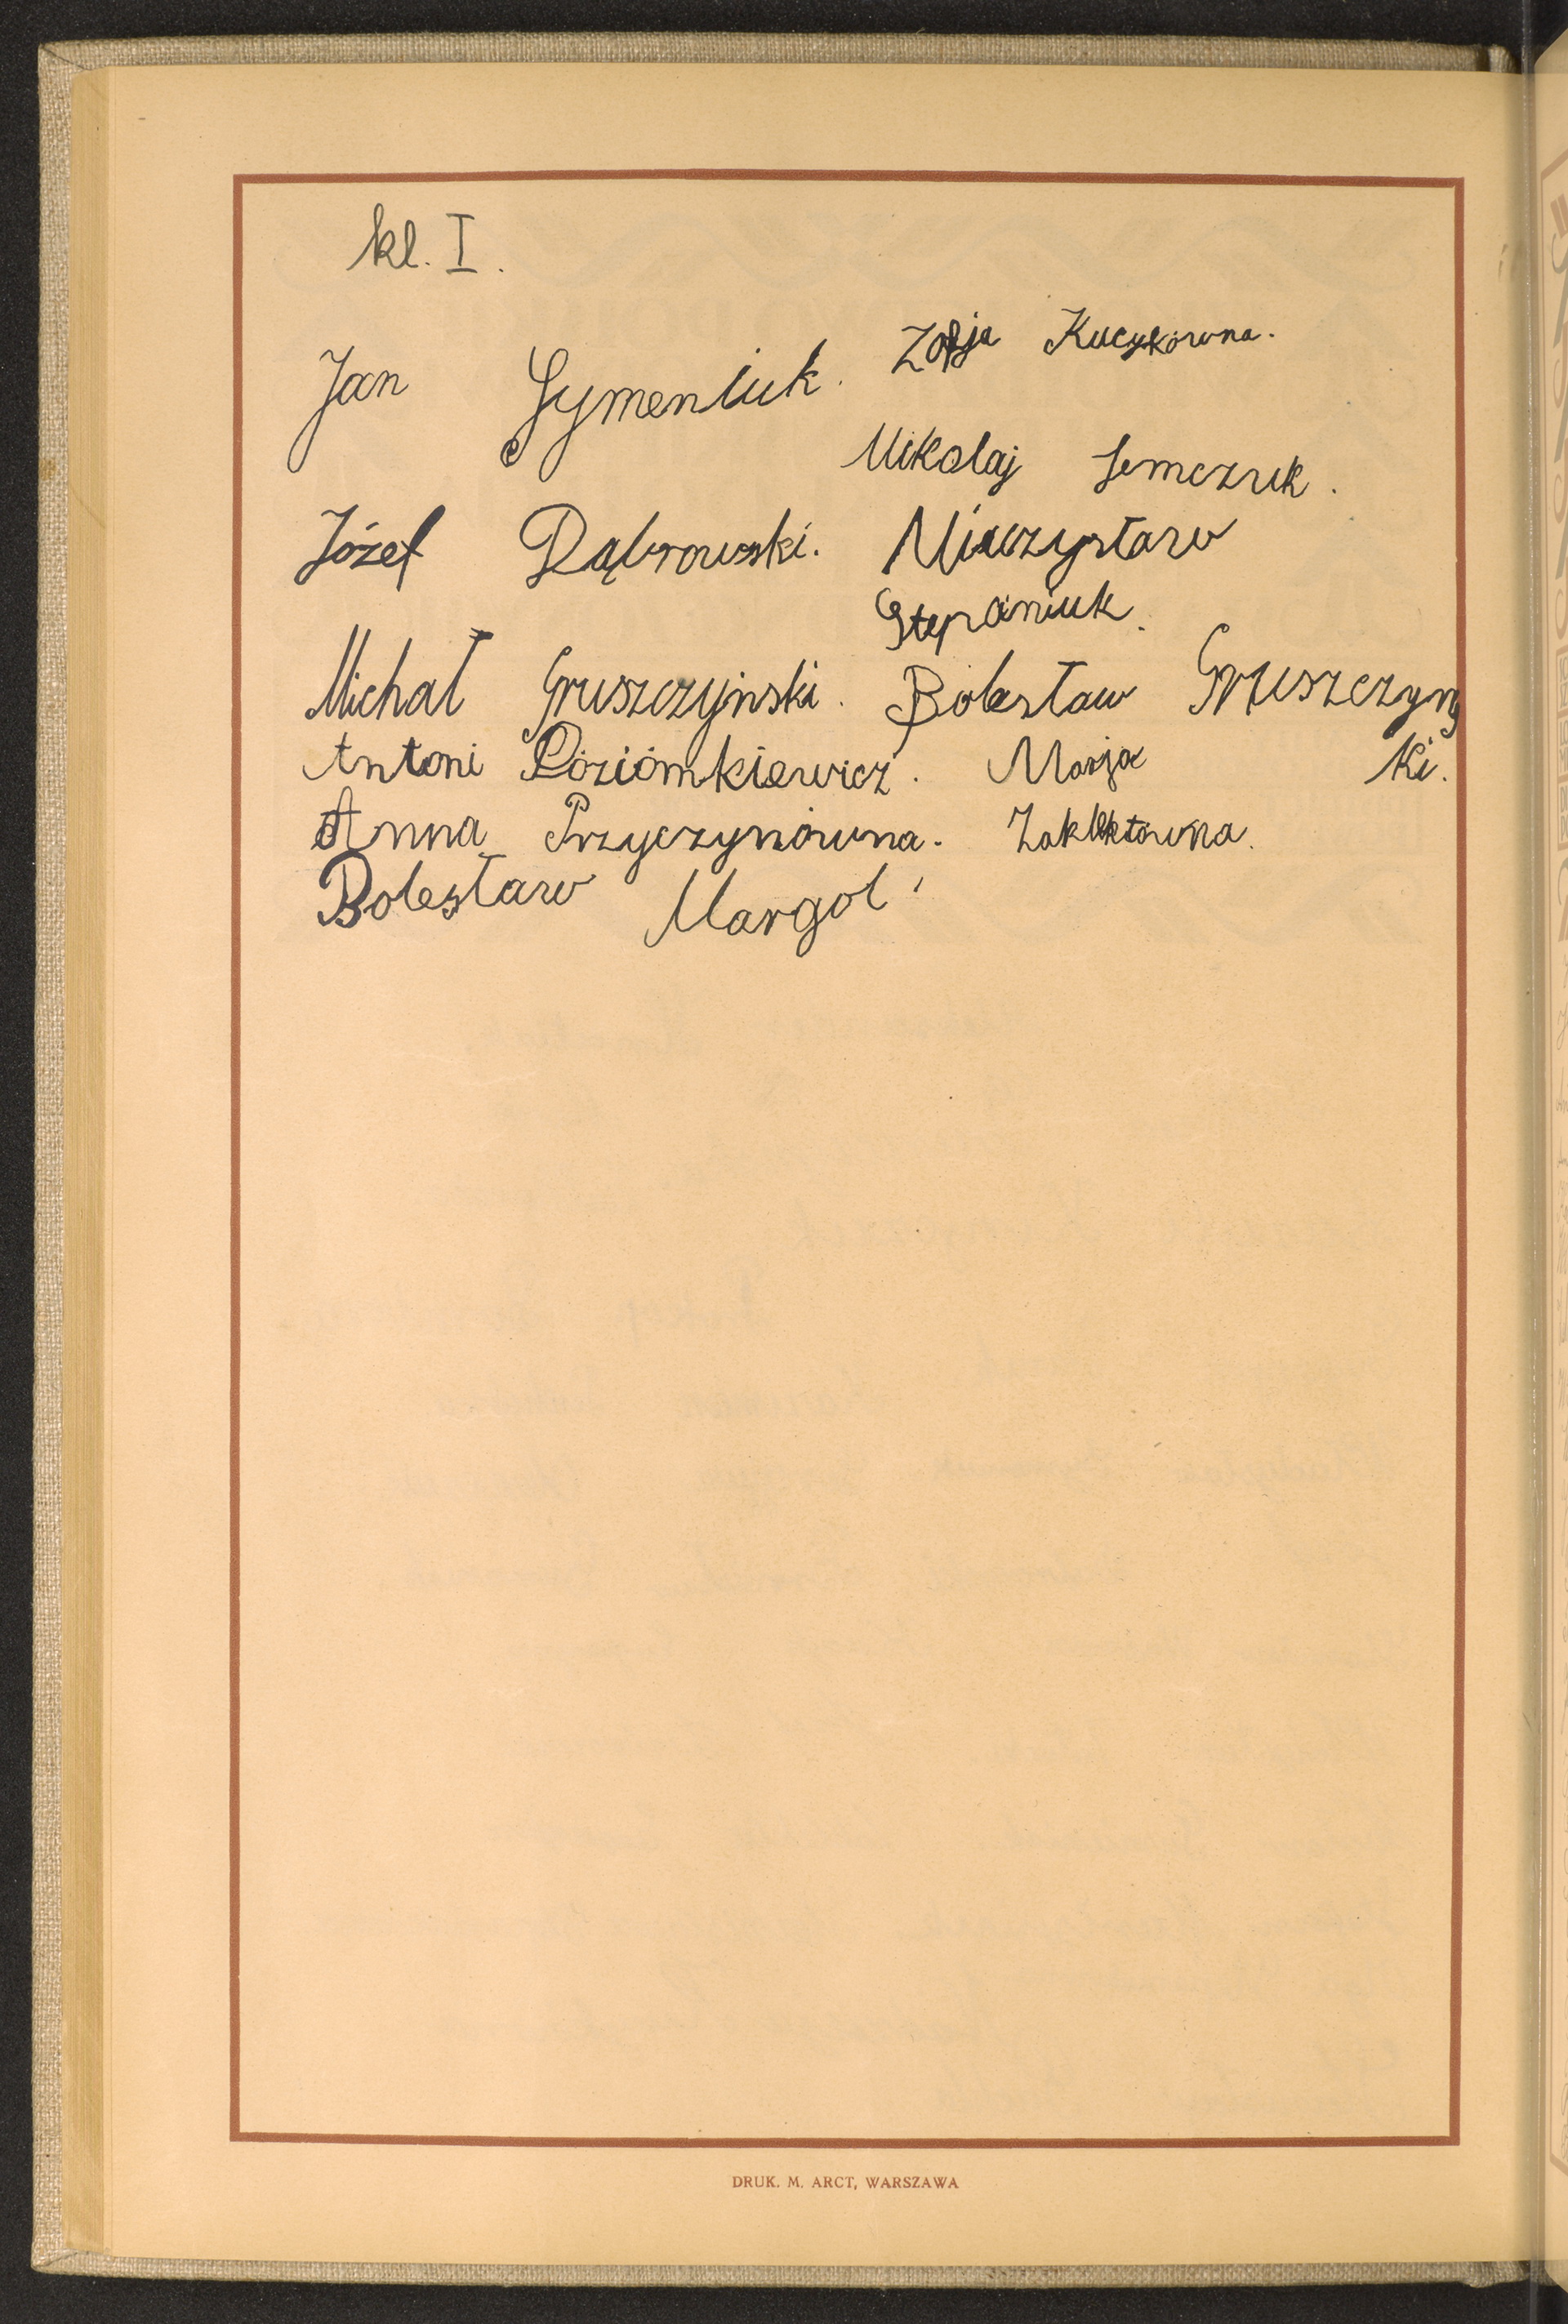 kl. I.
Jan Symeniuk. Zofja Kucykówna.
Mikolaj Semczuk.
Józef Dąbrowski. Mieczysław
Stepaniuk.
Michał Gruszczyński. Bolesław Gruszczyńs
Antoni Poziomkiewicz. Marja ki.
Anna Przyczynówna. Zaklektówna.
Bolesław Margol
DRUK. M. ARCT, WARSZAWA